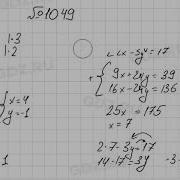 №1049
1·3
1·2
x=4
y=-1
2x-3y=17
+ 9x+24y=39
16x-24y=136
25x=175
x=7
2·7-3y=17
14-17=3y
-3
1